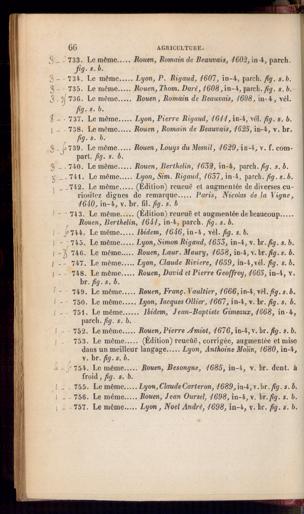 66 AGRICULTURE.
733. Le même..... Rouen, Romain de Beauvais, 1602, in-4, parch.
fig. s. b.
734. Le même..... Lyon, P. Rigaud, 1607, in-4, parch. fig. s. b.
735. Le même..... Rouen, Thom. Daré, 1608, in-4, parch. fig. s. b.
736. Le même..... Rouen, Romain de Beauvais, 1608, in-4, vél.
fig. s. b.
737. Le même..... Lyon, Pierre Rigaud, 1611, in-4, vél. fig. s. b.
738. Le même..... Rouen, Romain de Beauvais, 1625, in-4, v. br.
fig. s. b.
739. Le même..... Rouen, Louys du Mesnil, 1629, in-4, v. f. com-
part. fig. s. b.
740. Le même..... Rouen, Berthelin, 1632, in-4, parch. fig. s. b.
741. Le même..... Lyon, Sim. Rigaud, 1637, in-4, parch. fig. s. b.
742. Le même..... (Édition) reueuë et augmentée de diverses cu-
riositez dignes de remarque..... Paris, Nicolas de la Vigne,
1640, in-4, v. br. fil. fig. s. b
743. Le même..... (Édition) reueuë et augmentée de beaucoup.....
Rouen, Berthelin, 1641, in-4, parch. fig. s. b.
744. Le même..... Ibidem, 1646, in-4, vél. fig. s. b.
745. Le même..... Lyon, Simon Rigaud, 1655, in-4, v. br. fig. s. b.
746. Le même..... Rouen, Laur. Maury, 1658, in-4, v. br. fig. s. b.
747. Le même..... Lyon, Claude Riviere, 1659, in-4, vél. fig. s. b.
748. Le même..... Rouen, David et Pierre Geoffroy, 1665, in-4, v.
br. fig. s. b.
749. Le même..... Rouen, Franç. Vaultier, 1666, in-4, vél. fig. s. b.
750. Le même..... Lyon, Jacques Ollier, 1667, in-4, v. br. fig. s. b.
751. Le même..... Ibidem, Jean-Baptiste Gimeaux, 1668, in-4,
parch. fig. s. b.
752. Le même..... Rouen, Pierre Amiot, 1676, in-4, v. br. fig. s. b.
753. Le même..... (Édition) reueuë, corrigée, augmentée et mise
dans un meilleur langage..... Lyon, Anthoine Molin, 1680, in-4,
v. br. fig. s. b.
754. Le même..... Rouen, Besongne, 1685, in-4, v. br. dent. à
froid, fig. s. b.
755. Le même..... Lyon, Claude Carteron, 1689, in-4, v. br. fig. s. b.
756. Le même..... Rouen, Jean Oursel, 1698, in-4, v. br. fig. s. b.
757. Le même..... Lyon, Noel André, 1698, in-4, v. br. fig. s. b.